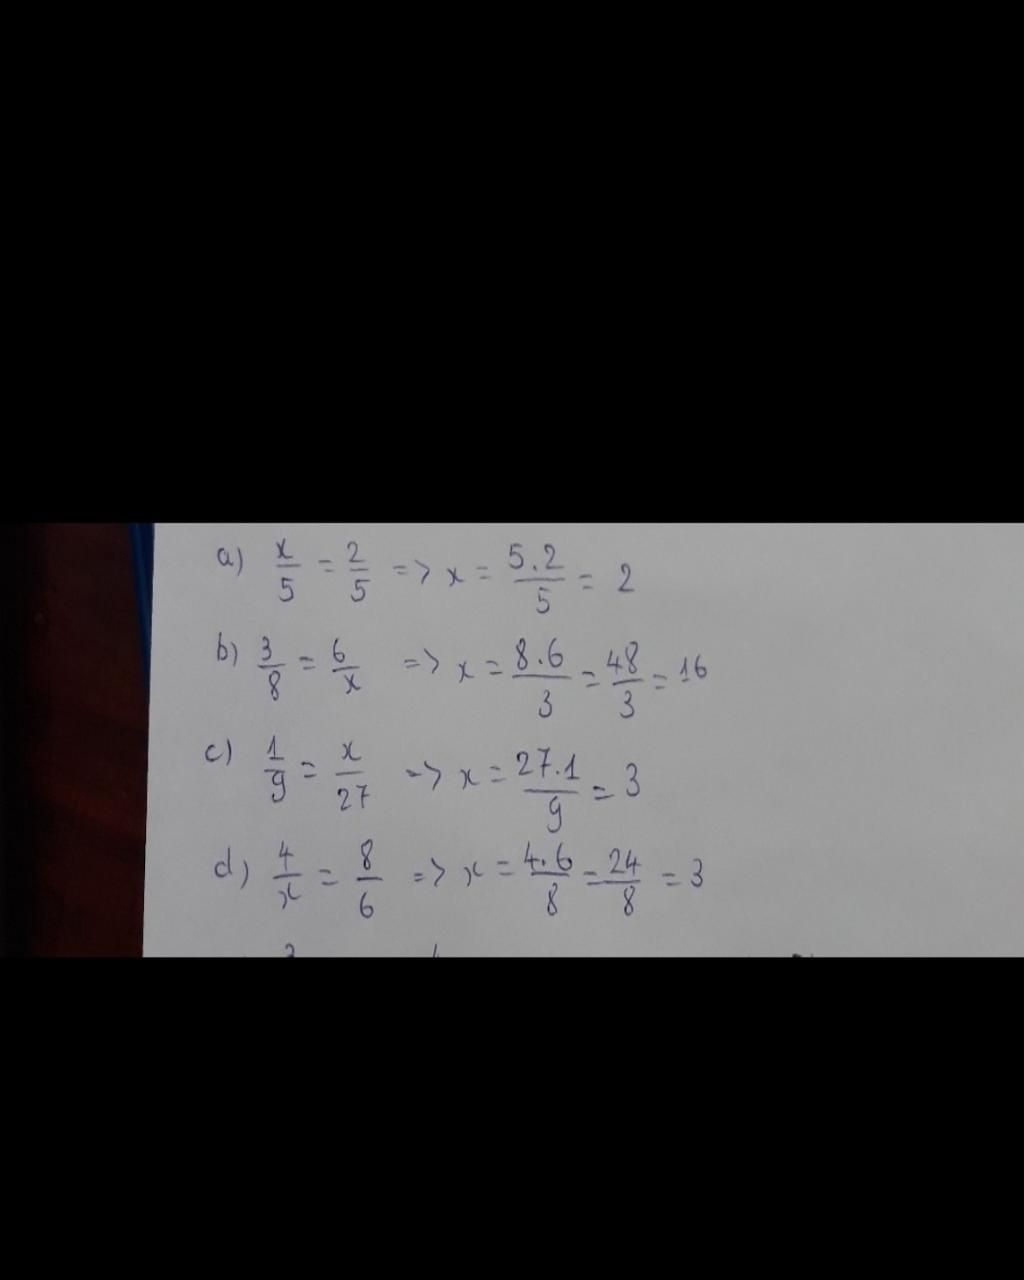 a) x/5 = 2/5 => x = 5.2/5 = 2
b) 3/8 = 6/x => x = 8.6/3 = 48/3 = 16
c) 1/9 = x/27 => x = 27.1/9 = 3
d) 4/x = 8/6 => x = 4.6/8 = 24/8 = 3